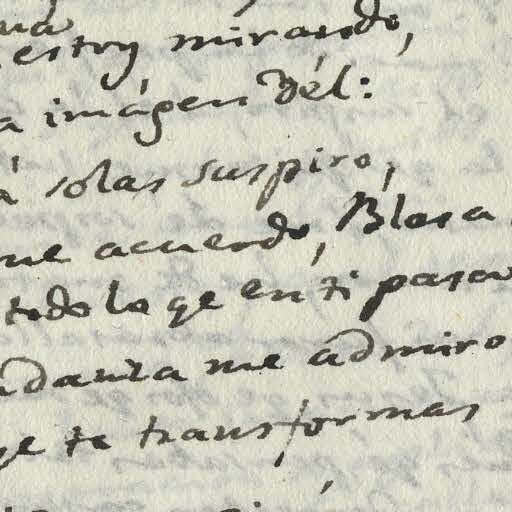 estoy mirando,
imágen Dél:
á solas suspiro,
me acuerdo, Blasa
todo lo qe en ti pasar
me admiro
te transformas